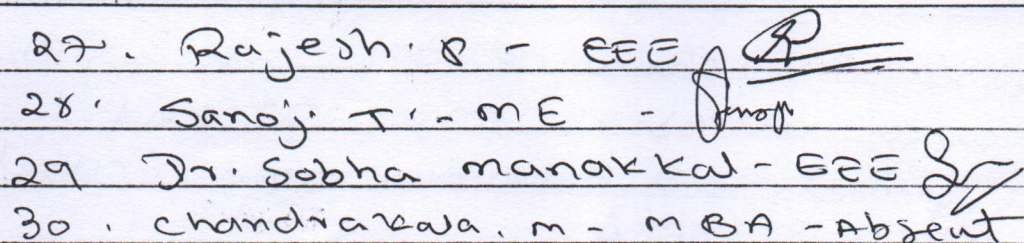 27. Rajesh. P - EEE
28. Sanoj. T. - ME - Sanoj
29 Dr. Sobha Manakkal - EEE
30. Chandrakala. M - MBA - Absent